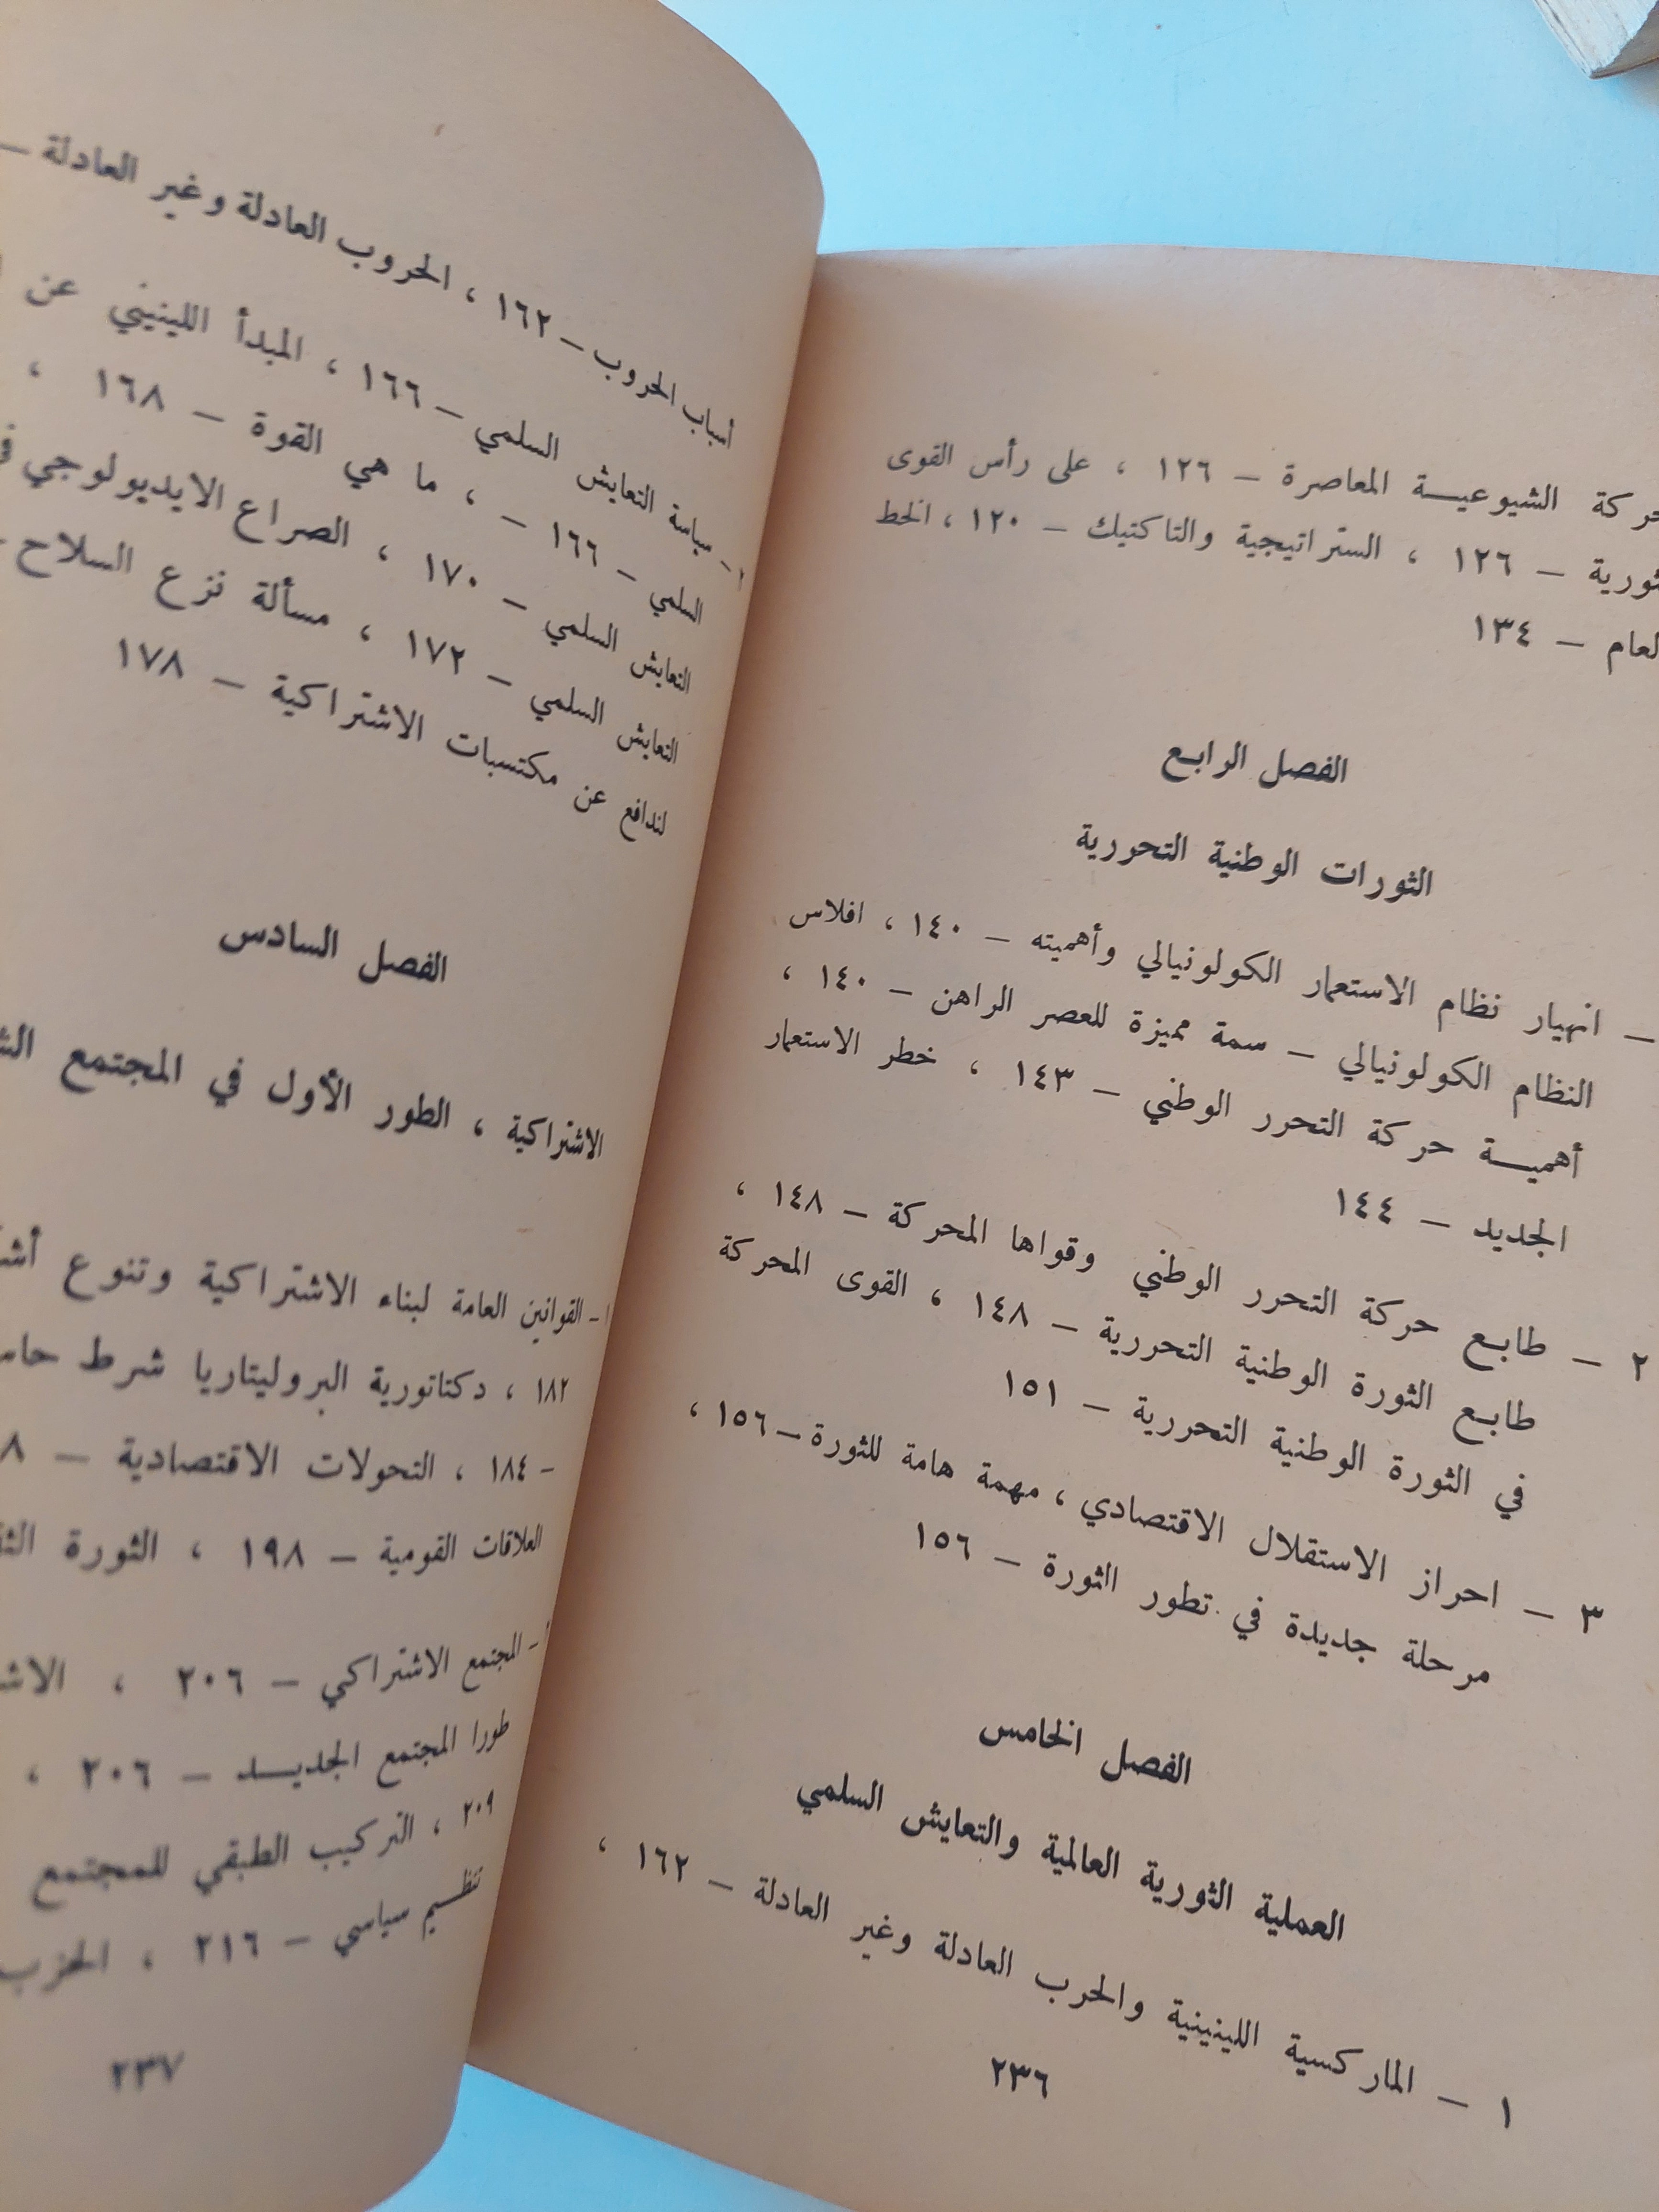 الشيوعيـــة المعاصرة – ١٢٦ ، على رأس القوى
– ١٢٦ ، الستراتيجية والتاكتيك – ١٢٠ ، الخط
– ١٣٤
الفصل الرابـع
الثورات الوطنية التحررية
– انهيار نظام الاستعمار الكولونيالي وأهميته – ١٤٠ ، افلاس
النظام الكولونيالي – سمة مميزة للعصر الراهن – ١٤٠ ،
أهميـــة حركة التحرر الوطني – ١٤٣ ، خطر الاستعمار
الجديد – ١٤٤
٢ – طابـع حركة التحرر الوطني وقواها المحركة – ١٤٨ ،
طابـع الثورة الوطنية التحررية – ١٤٨ ، القوى المحركة
في الثورة الوطنية التحررية – ١٥١
٣ – احراز الاستقلال الاقتصادي ، مهمة هامة للثورة – ١٥٦ ،
مرحلة جديدة في تطور الثورة – ١٥٦
الفصل الخامس
العملية الثورية العالمية والتعايش السلمي
١ – الماركسية اللينينية والحرب العادلة وغير العادلة – ١٦٢ ،
٢٣٦
أسباب الحروب – ١٦٢ ، الحروب العادلة وغير العادلة –
– سياسة التعايش السلمي – ١٦٦ ، المبدأ اللينيني عن
السلمي – ١٦٦ – ، ما هي القوة – ١٦٨ ،
التعايش السلمي – ١٧٠ ، الصراع الايديولوجي
التعايش السلمي – ١٧٢ ، مسألة نزع السلاح
لندافع عن مكتسبات الاشتراكية – ١٧٨
الفصل السادس
الاشتراكية ، الطور الأول في المجتمع
١ – القوانين العامة لبناء الاشتراكية وتنوع
١٨٢ ، دكتاتورية البروليتاريا شرط
– ١٨٤ ، التحولات الاقتصادية –
العلاقات القومية – ١٩٨ ، الثورة
– المجتمع الاشتراكي – ٢٠٦ ،
طورا المجتمع الجديـــد – ٢٠٦ ،
٢٠٩ ، التركيب الطبقي للمجتمع
تنظـــيم سياسي – ٢١٦ ، الحزب
٢٣٧